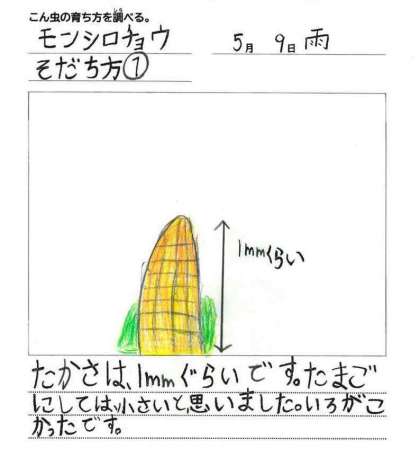 こん虫の育ち方を調べる。
モンシロチョウ
5月 9日 雨
そだち方①
1mmくらい
たかさは、1mmぐらいです。たまご
にしては、小さいと、思いました。いろがこ
かったです。